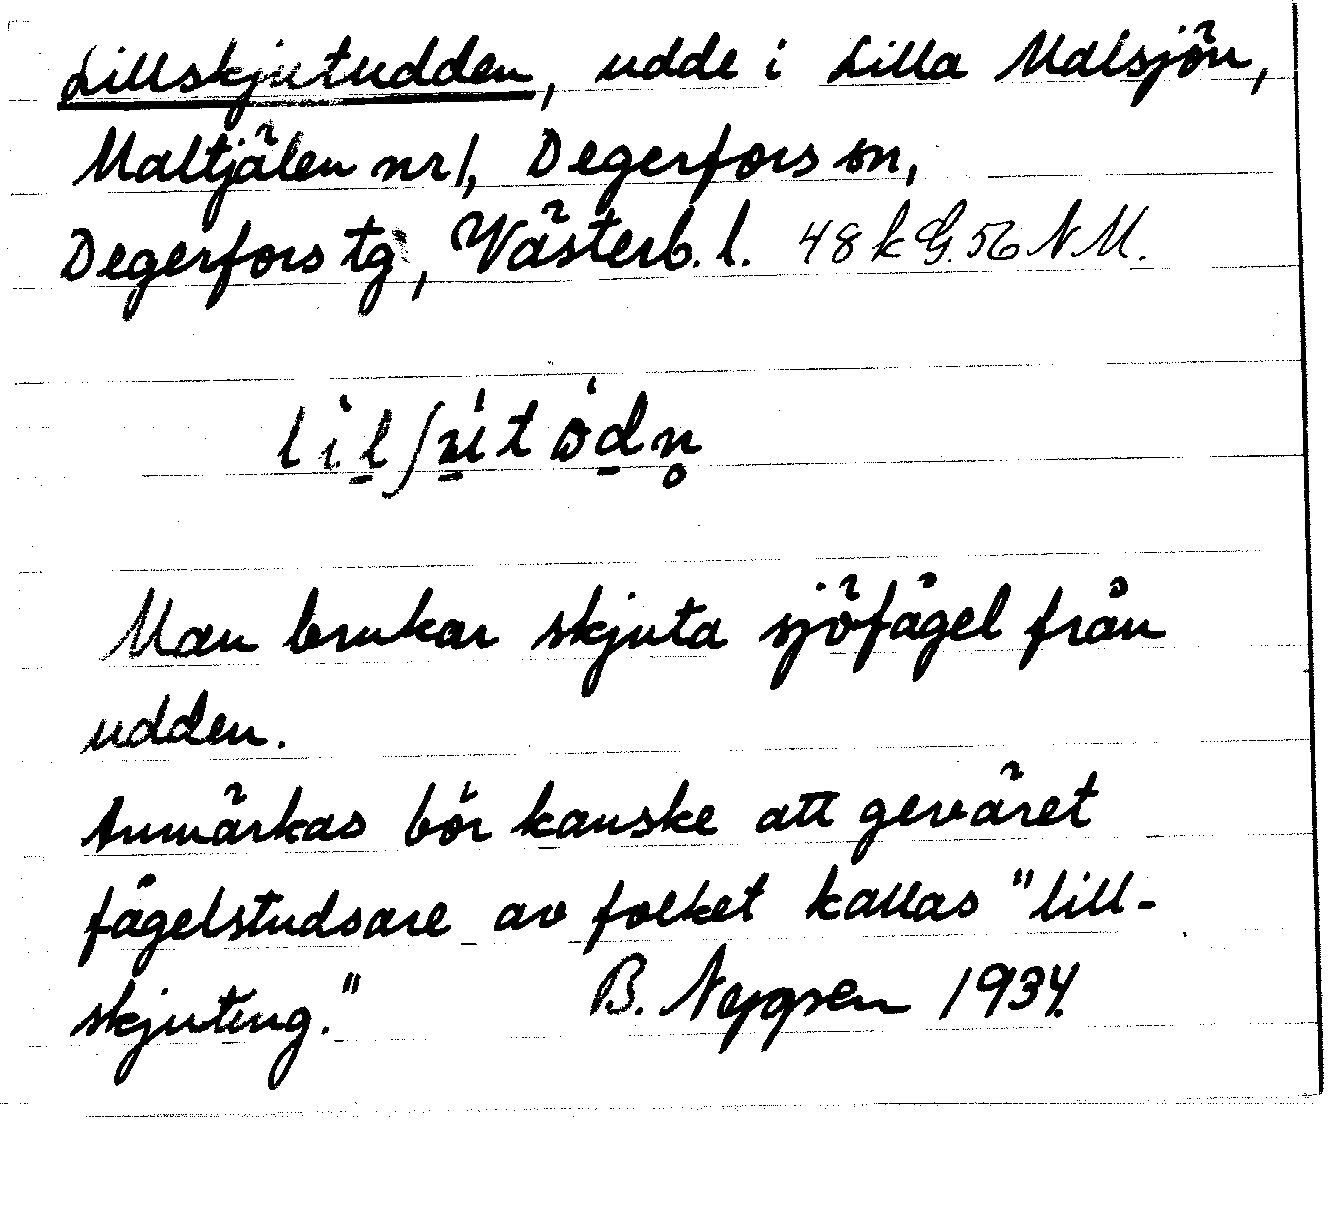 Lillskjutudden, udde i Lilla Malsjön,
Maltjälen nr 1, Degerfors sn,
Degerfors tg, Västerb. l. 48 k G. 56 N M.
Man brukar skjuta sjöfågel från
udden.
Anmärkas bör kanske att geväret
fågelstudsare av folket kallas "lill-
skjuting."
B. Neppsen 1934.